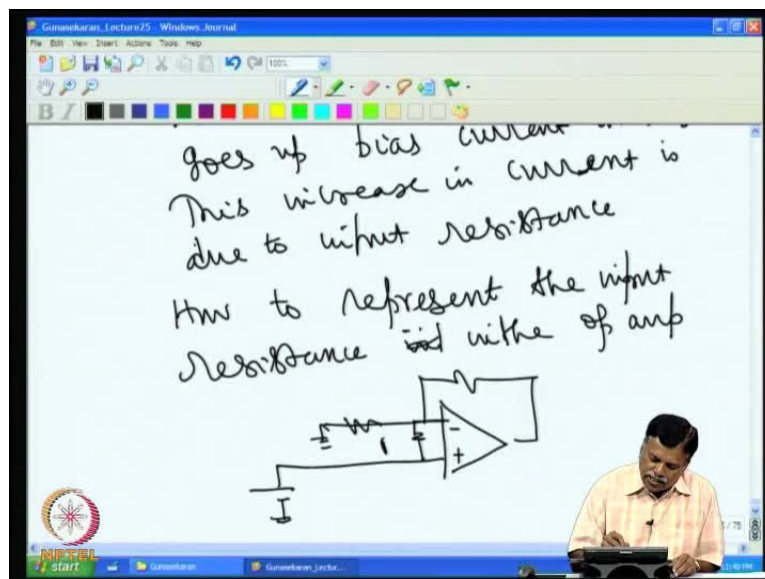 Gunasekaran_Lecture25 - Windows Journal
File Edit View Insert Actions Tools Help
100%
B I
goes up bias current
This increase in current is
due to input resistance
How to represent the input
resistance in the op amp
-
+
/ 75
NPTEL
start Gunasekaran Gunasekaran_Lectur...